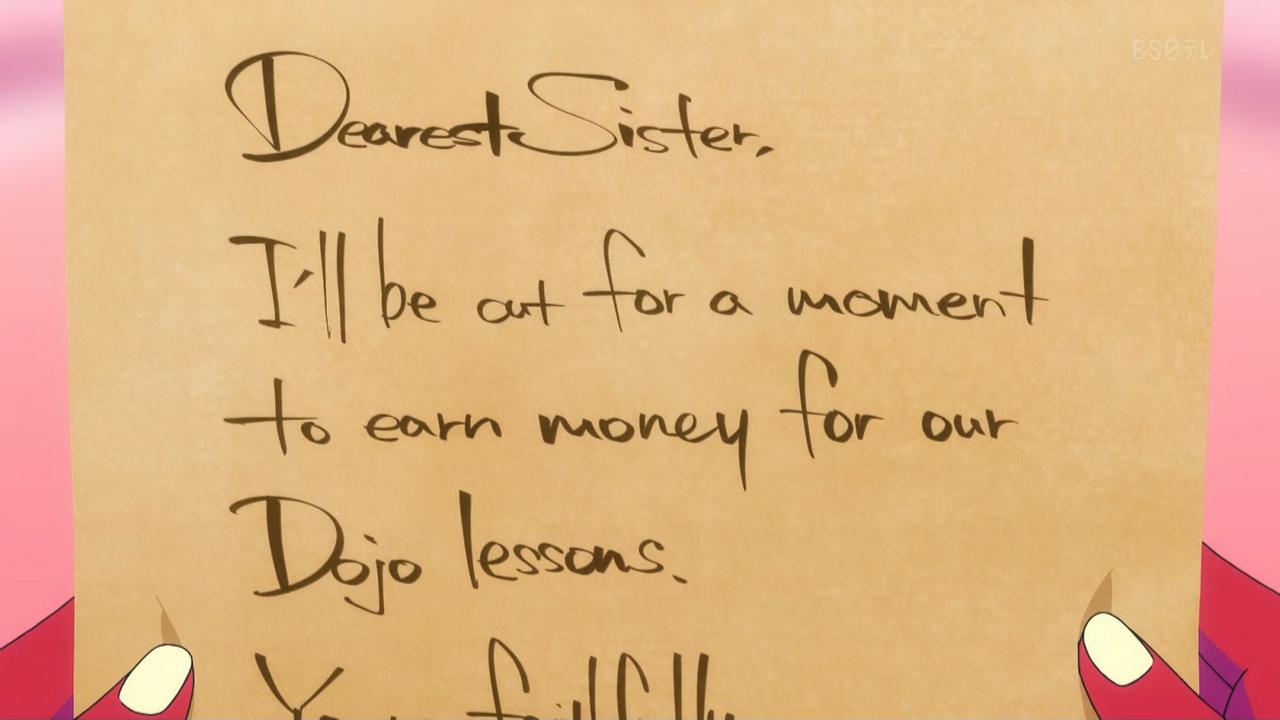 BS日テレ
Dearest Sister,
I'll be out for a moment
to earn money for our
Dojo lessons.